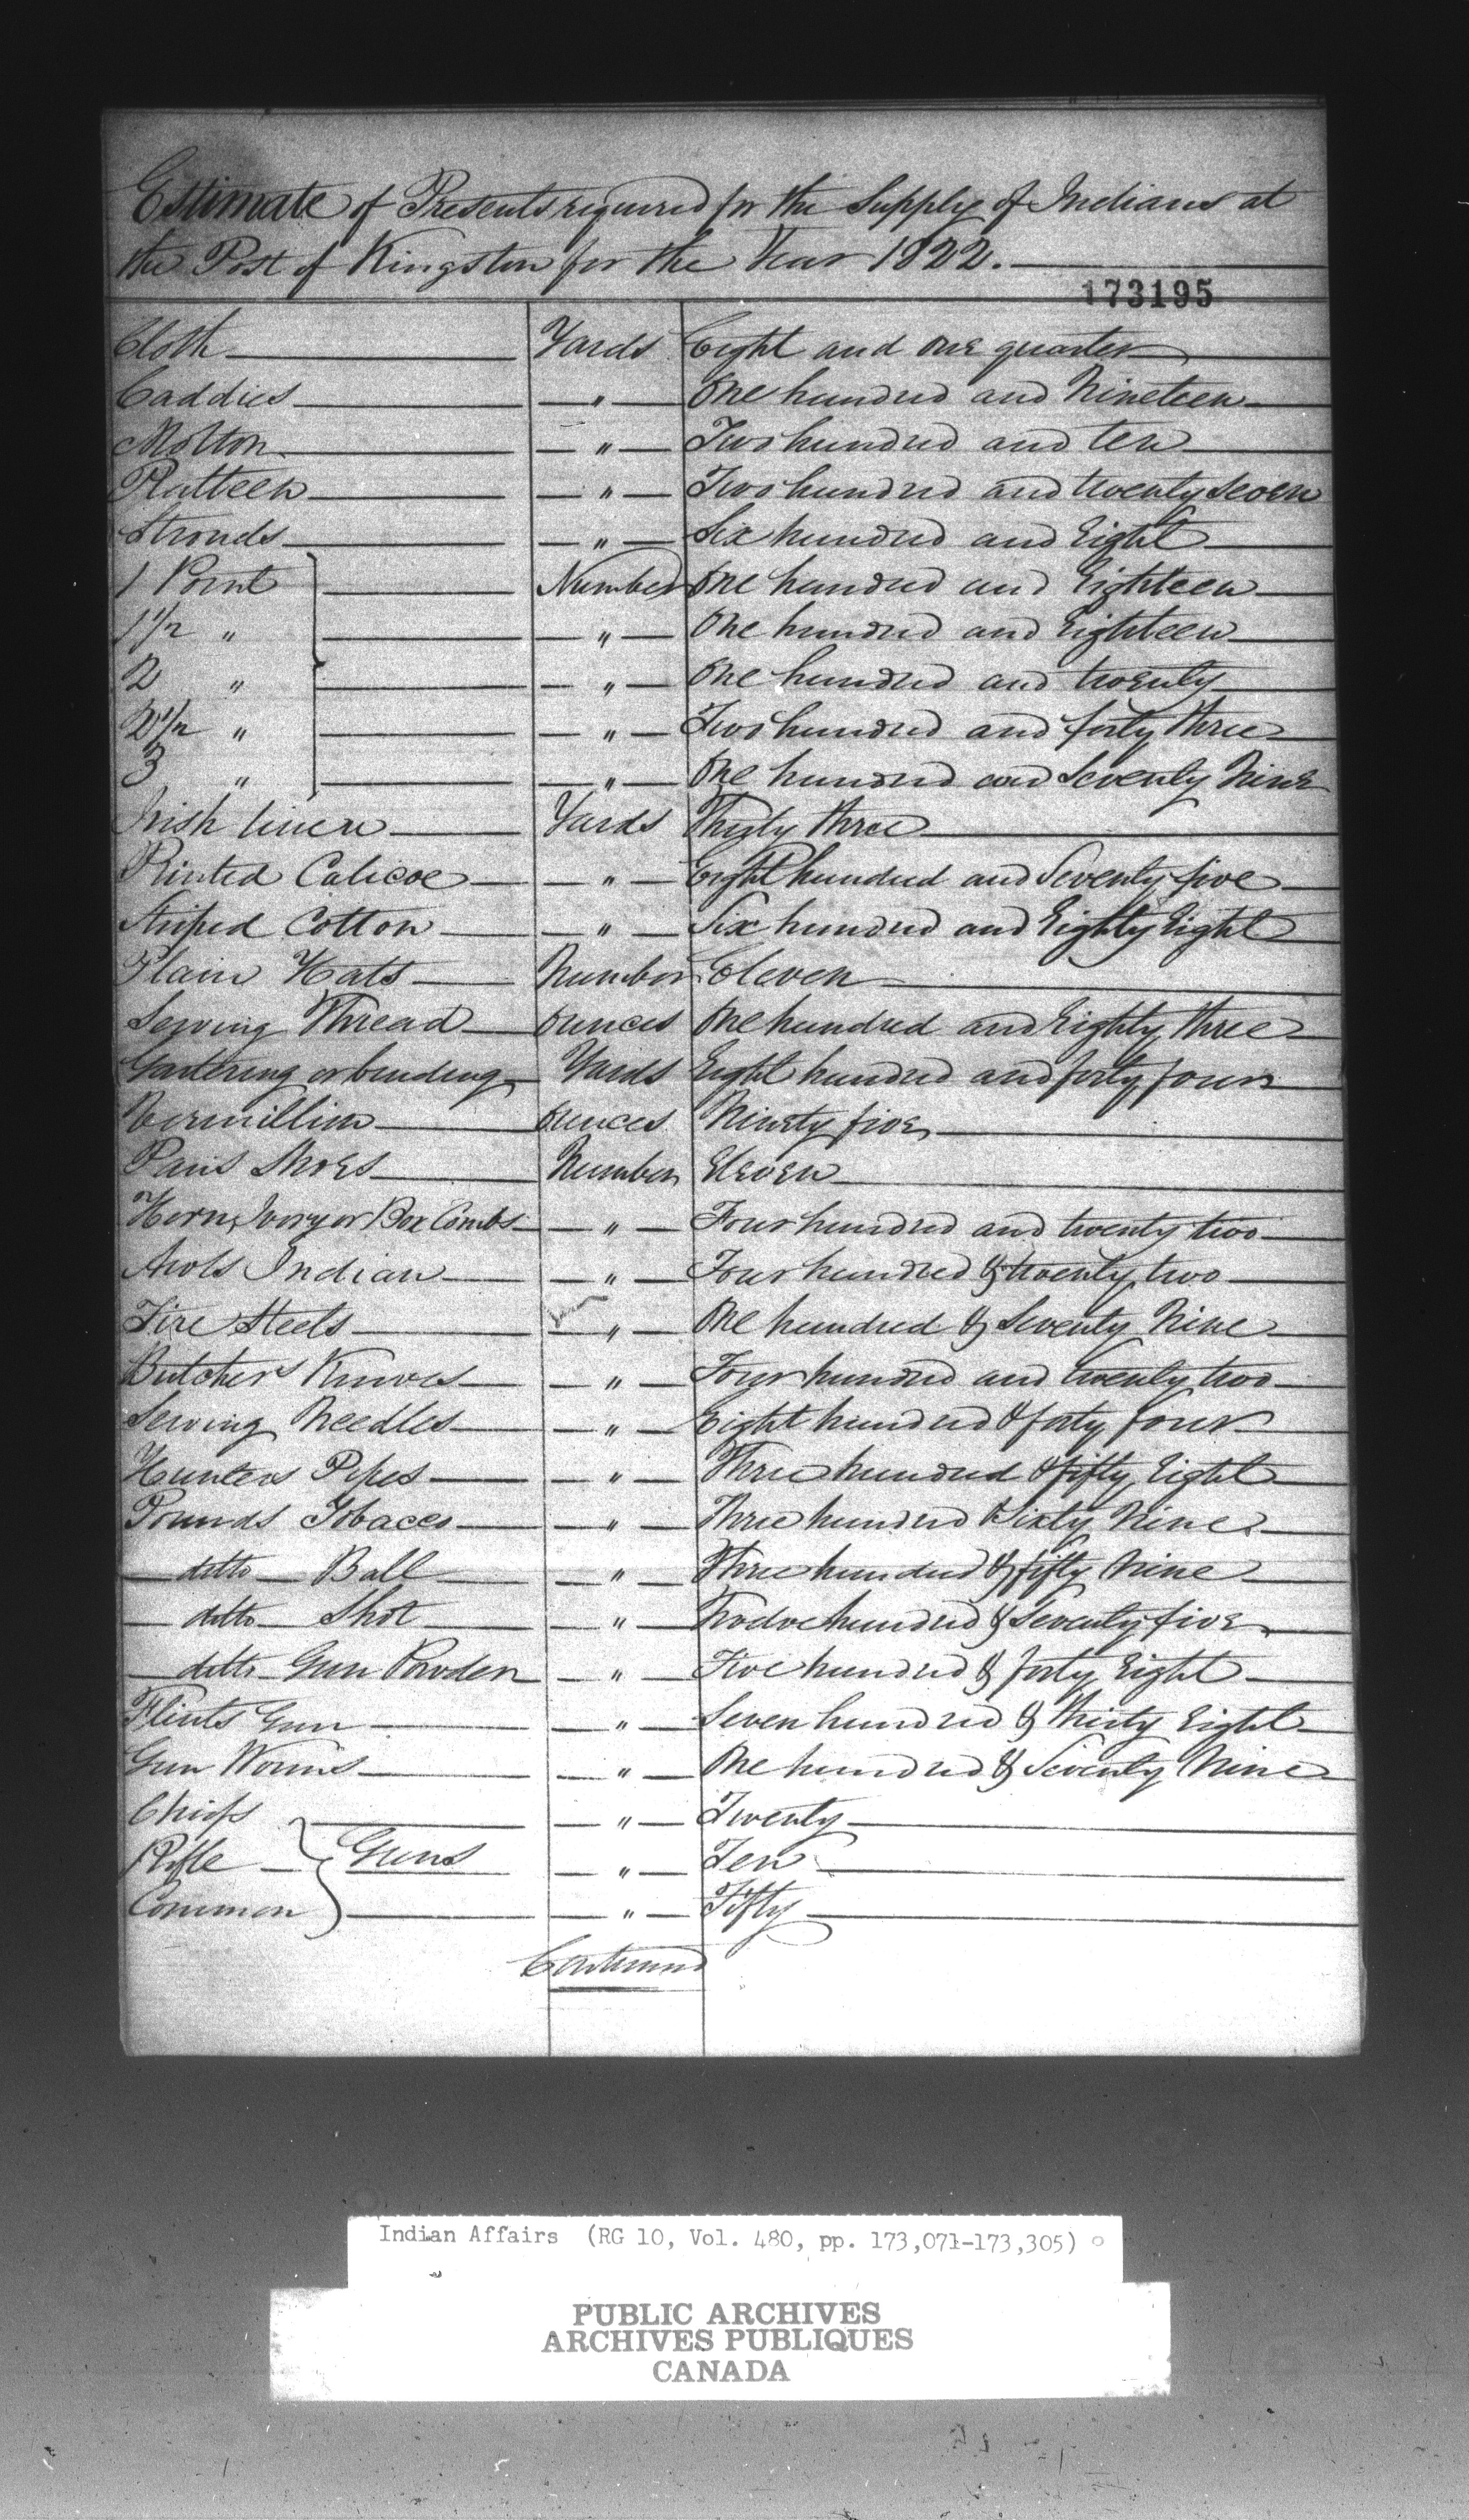 Estimate of Presents required for the Supply of Indians at
the Post of Kingston for the Year 1822.
173195
Cloth Yards Eight and one quarter
Caddies " One hundred and Nineteen
Molton " Two hundred and ten
Ratteen " Two hundred and twenty Seven
Strouds " Six hundred and Eight
1 Point Number One hundred and Eighteen
1 1/2 " " One hundred and Eighteen
2 " " One hundred and twenty
2 1/2 " " Two hundred and forty three
3 " " One hundred and Seventy Nine
Irish linen Yards Thirty three
Printed Calicoe " Eight hundred and Seventy five
Striped Cotton " Six hundred and Eighty Eight
Plain Hats Number Eleven
Sewing Thread Ounces One hundred and Eighty three
Gartering or binding Yards Eight hundred and forty four
Vermillion Ounces Ninety five
Pairs Shoes Number Eleven
Horn, Ivory or Box Combs " Four hundred and twenty two
Awls Indian " Four hundred & twenty two
Fire Steels " One hundred & Seventy Nine
Butcher Knives " Four hundred and twenty two
Sewing Needles " Eight hundred & forty four
Hunters Pipes " Three hundred & fifty Eight
Pounds Tobacco " Three hundred & Sixty Nine
ditto Ball " Three hundred & fifty Nine
ditto Shot " Twelve hundred & Seventy five
ditto Gun Powder " Five hundred & forty Eight
Flints Gun " Seven hundred & thirty Eight
Gun Worms " One hundred & Seventy Nine
Chiefs " Twenty
Rifle Guns " Ten
Common " Fifty
Continued
Indian Affairs (RG 10, Vol. 480, pp. 173,071-173,305)
PUBLIC ARCHIVES
ARCHIVES PUBLIQUES
CANADA